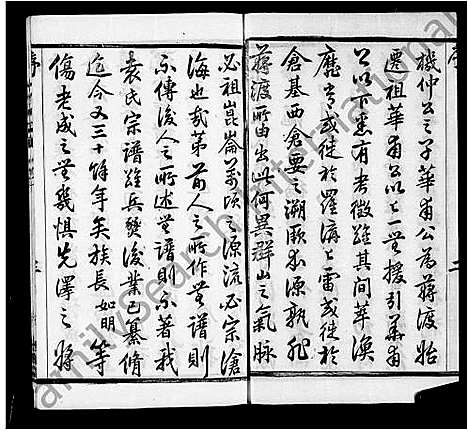 機仲公之子華甫公為蔣渡始
遷祖華甫公以上一無援引華甫
公以下悉有考徵雖其間華渙
應肯或徙於羅溝上雷或徙於
倉基西倉要之溯厥本源孰非
蔣渡所由出此何異群山之氣脉
必祖崑崙萬頃之源流必宗滄
海也哉第前人之所作無譜則
不傳後人之所述無譜則不著我
袁氏宗譜雖兵燹後業已纂脩
迄今又三十餘年矣族長如明等
傷老成之無幾懼先澤之將
序
二
序
FamilySearch International